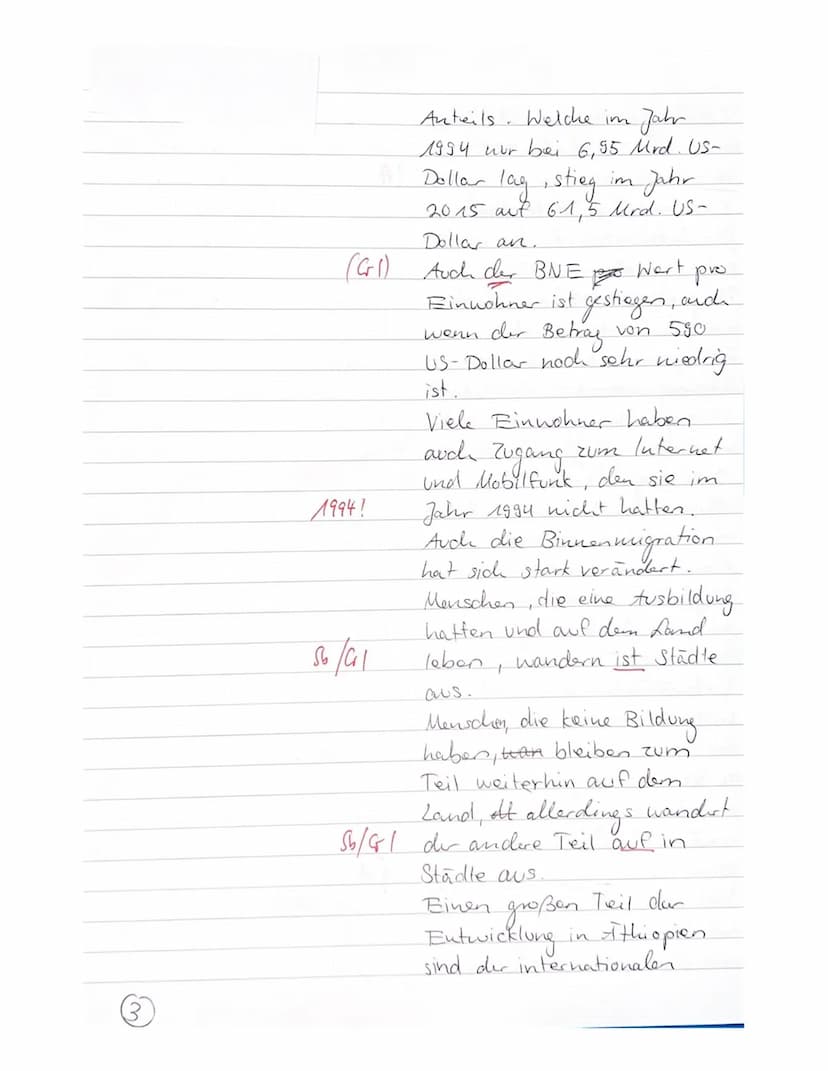 Anteils. Welche im Jahr
1994 nur bei 6,95 Mrd. US-
Dollar lag, stieg im Jahr
2015 auf 61,5 Mrd. US-
Dollar an.
(Gr) Auch der BNE pro Wert pro
Einwohner ist gestiegen, auch
wenn der Betrag von 590
US-Dollar noch sehr niedrig
ist.
Viele Einwohner haben
auch Zugang zum Internet
und Mobilfunk, den sie im
1994! Jahr 1994 nicht hatten.
Auch die Binnenmigration
hat sich stark verändert.
Menschen, die eine Ausbildung
hatten und auf dem Land
Sb/Gr leben, wandern ist Städte
aus.
Menschen, die keine Bildung
haben, wan bleiben zum
Teil weiterhin auf dem
Land, allerdings wandert
Sb/Gr der andere Teil auf in
Städte aus.
Einen großen Teil der
Entwicklung in Äthiopien
sind der internationalen
3